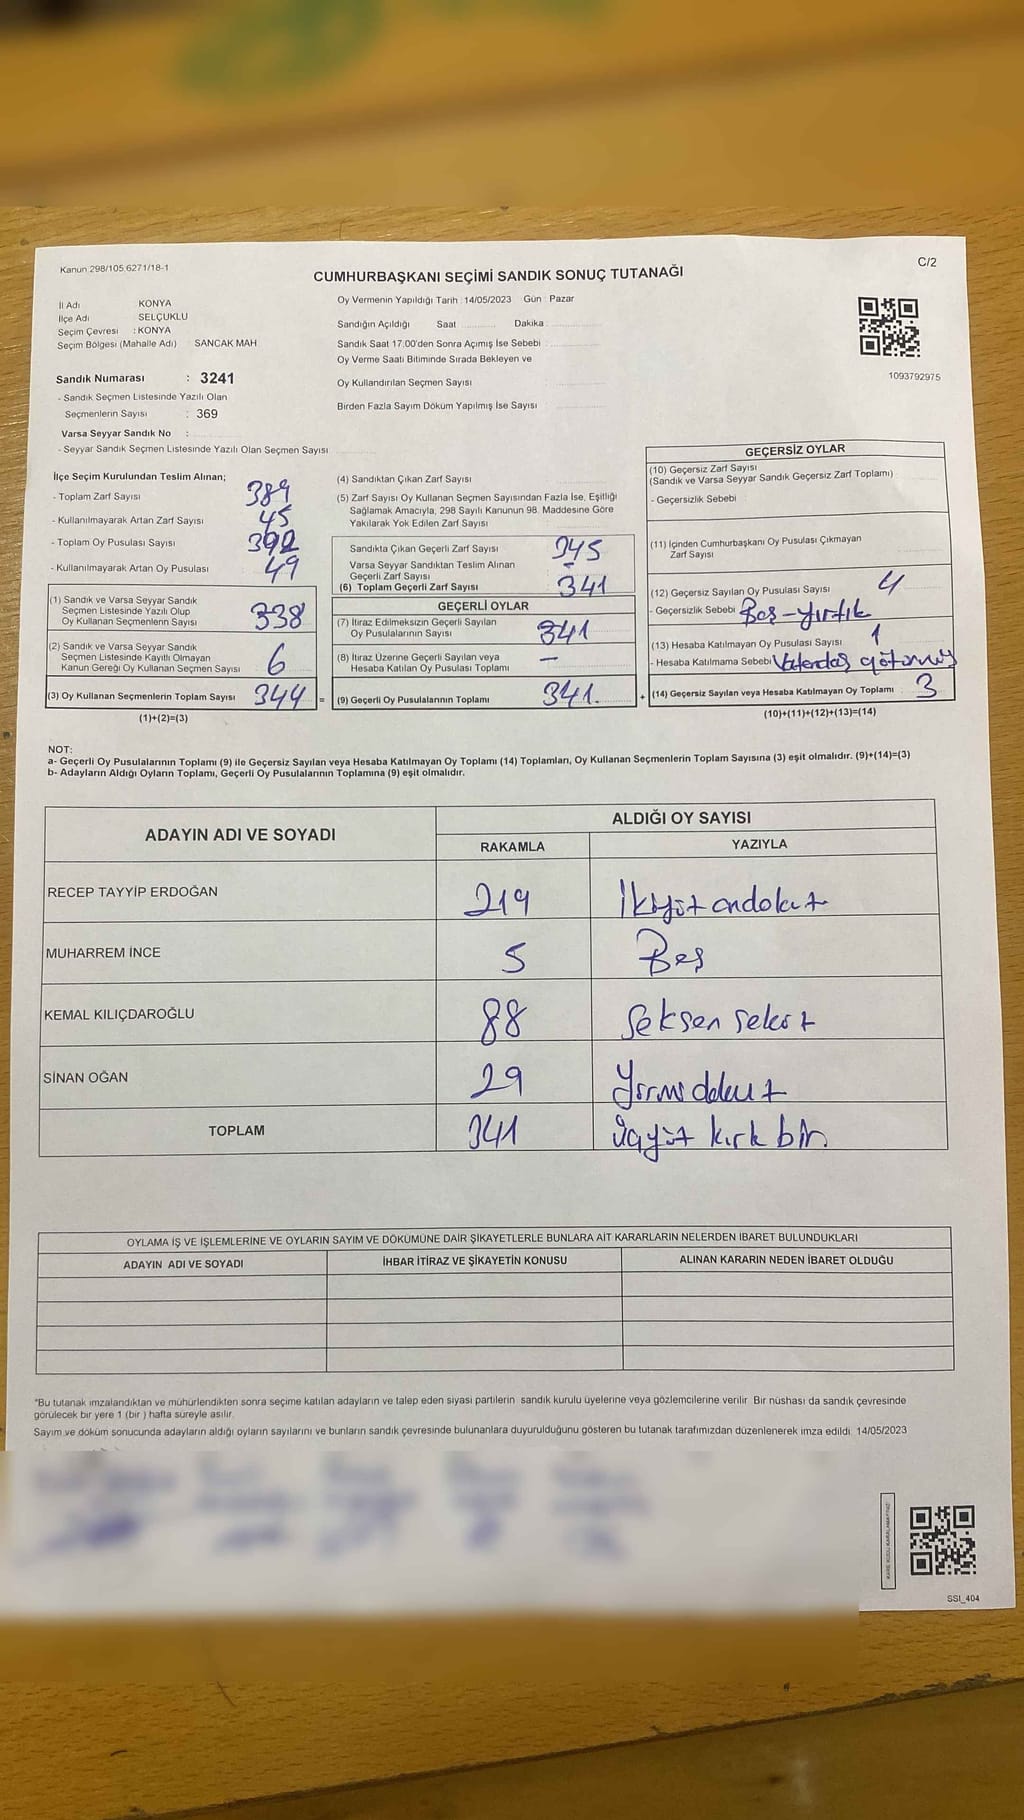 Kanun:298/105,6271/18-1
C/2
CUMHURBAŞKANI SEÇİMİ SANDIK SONUÇ TUTANAĞI
İl Adı : KONYA
İlçe Adı : SELÇUKLU
Seçim Çevresi : KONYA
Seçim Bölgesi (Mahalle Adı) SANCAK MAH
Sandık Numarası : 3241
- Sandık Seçmen Listesinde Yazılı Olan
Seçmenlerin Sayısı : 369
Varsa Seyyar Sandık No :
- Seyyar Sandık Seçmen Listesinde Yazılı Olan Seçmen Sayısı
Oy Vermenin Yapıldığı Tarih : 14/05/2023 Gün : Pazar
Sandığın Açıldığı Saat Dakika :
Sandık Saat 17:00'den Sonra Açımış İse Sebebi :
Oy Verme Saati Bitiminde Sırada Bekleyen ve
Oy Kullandırılan Seçmen Sayısı :
Birden Fazla Sayım Döküm Yapılmış İse Sayısı :
1093792975
İlçe Seçim Kurulundan Teslim Alınan;
- Toplam Zarf Sayısı 389
- Kullanılmayarak Artan Zarf Sayısı 45
- Toplam Oy Pusulası Sayısı 392
- Kullanılmayarak Artan Oy Pusulası 49
(1) Sandık ve Varsa Seyyar Sandık
Seçmen Listesinde Yazılı Olup
Oy Kullanan Seçmenlerin Sayısı 338
(2) Sandık ve Varsa Seyyar Sandık
Seçmen Listesinde Kayıtlı Olmayan
Kanun Gereği Oy Kullanan Seçmen Sayısı 6
(3) Oy Kullanan Seçmenlerin Toplam Sayısı 344 =
(1)+(2)=(3)
(4) Sandıktan Çıkan Zarf Sayısı
(5) Zarf Sayısı Oy Kullanan Seçmen Sayısından Fazla İse, Eşitliği
Sağlamak Amacıyla, 298 Sayılı Kanunun 98. Maddesine Göre
Yakılarak Yok Edilen Zarf Sayısı
Sandıkta Çıkan Geçerli Zarf Sayısı 345
Varsa Seyyar Sandıktan Teslim Alınan
Geçerli Zarf Sayısı -
(6) Toplam Geçerli Zarf Sayısı 341
GEÇERLİ OYLAR
(7) İtiraz Edilmeksizin Geçerli Sayılan
Oy Pusulalarının Sayısı 341
(8) İtiraz Üzerine Geçerli Sayılan veya
Hesaba Katılan Oy Pusulası Toplamı —
(9) Geçerli Oy Pusulalarının Toplamı 341. +
GEÇERSİZ OYLAR
(10) Geçersiz Zarf Sayısı
(Sandık ve Varsa Seyyar Sandık Geçersiz Zarf Toplamı)
- Geçersizlik Sebebi
(11) İçinden Cumhurbaşkanı Oy Pusulası Çıkmayan
Zarf Sayısı
(12) Geçersiz Sayılan Oy Pusulası Sayısı 4
- Geçersizlik Sebebi Boş-yırtık
(13) Hesaba Katılmayan Oy Pusulası Sayısı 1
- Hesaba Katılmama Sebebi Vatandaş götürmüş
(14) Geçersiz Sayılan veya Hesaba Katılmayan Oy Toplamı 3
(10)+(11)+(12)+(13)=(14)
NOT:
a- Geçerli Oy Pusulalarının Toplamı (9) ile Geçersiz Sayılan veya Hesaba Katılmayan Oy Toplamı (14) Toplamları, Oy Kullanan Seçmenlerin Toplam Sayısına (3) eşit olmalıdır. (9)+(14)=(3)
b- Adayların Aldığı Oyların Toplamı, Geçerli Oy Pusulalarının Toplamına (9) eşit olmalıdır.
ADAYIN ADI VE SOYADI ALDIĞI OY SAYISI
RAKAMLA YAZIYLA
RECEP TAYYİP ERDOĞAN 219 İkiyüz ondokuz
MUHARREM İNCE 5 Beş
KEMAL KILIÇDAROĞLU 88 Seksen sekiz
SİNAN OĞAN 29 Yirmi dokuz
TOPLAM 341 üçyüz kırk bir.
OYLAMA İŞ VE İŞLEMLERİNE VE OYLARIN SAYIM VE DÖKÜMÜNE DAİR ŞİKAYETLERLE BUNLARA AİT KARARLARIN NELERDEN İBARET BULUNDUKLARI
ADAYIN ADI VE SOYADI İHBAR İTİRAZ VE ŞİKAYETİN KONUSU ALINAN KARARIN NEDEN İBARET OLDUĞU
*Bu tutanak imzalandıktan ve mühürlendikten sonra seçime katılan adayların ve talep eden siyasi partilerin sandık kurulu üyelerine veya gözlemcilerine verilir. Bir nüshası da sandık çevresinde
görülecek bir yere 1 (bir ) hafta süreyle asılır.
Sayım ve döküm sonucunda adayların aldığı oyların sayılarını ve bunların sandık çevresinde bulunanlara duyurulduğunu gösteren bu tutanak tarafımızdan düzenlenerek imza edildi. 14/05/2023
KARE KODU KARALAMAYINIZ
SSI_404